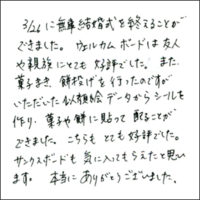 3/26に無事結婚式を終えることが
できました。ウェルカムボードは友人
や親族にとても好評でした。また、
菓子まき、餅投げを行ったのですが
いただいた似顔絵データからシールを
作り、菓子や餅に貼って配ることが
できました。こちらも とても好評でした。
サンクスボードも気に入ってもらえたと思い
ます。本当にありがとうございました。